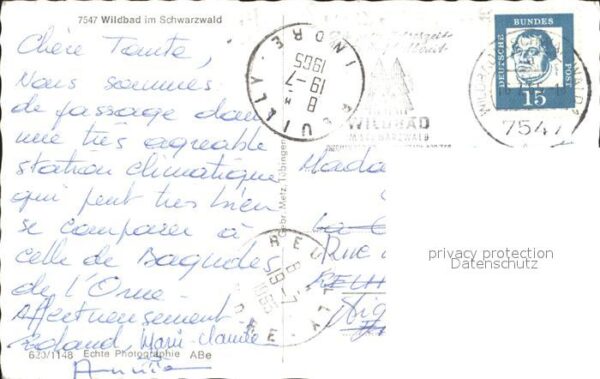 7547 Wildbad im Schwarzwald
Chère Tante,
Nous sommes
de passage dans
une très agréable
station climatique
qui peut très bien
se comparer à
celle de Bagnoles
de l'Orne.
Affectueusement
Roland, Marie-Claude
Annie
620/1148 Echte Photographie ABe
Gebr. Metz, Tübingen
REUILLY
INDRE
8 H
19-7
1965
WILDBAD
IM SCHWARZWALD
DEUTSCHE BUNDESPOST
15
7547
Mada
Rue
REUILLY
8 H
19-7
1965
INDRE
privacy protection
Datenschutz